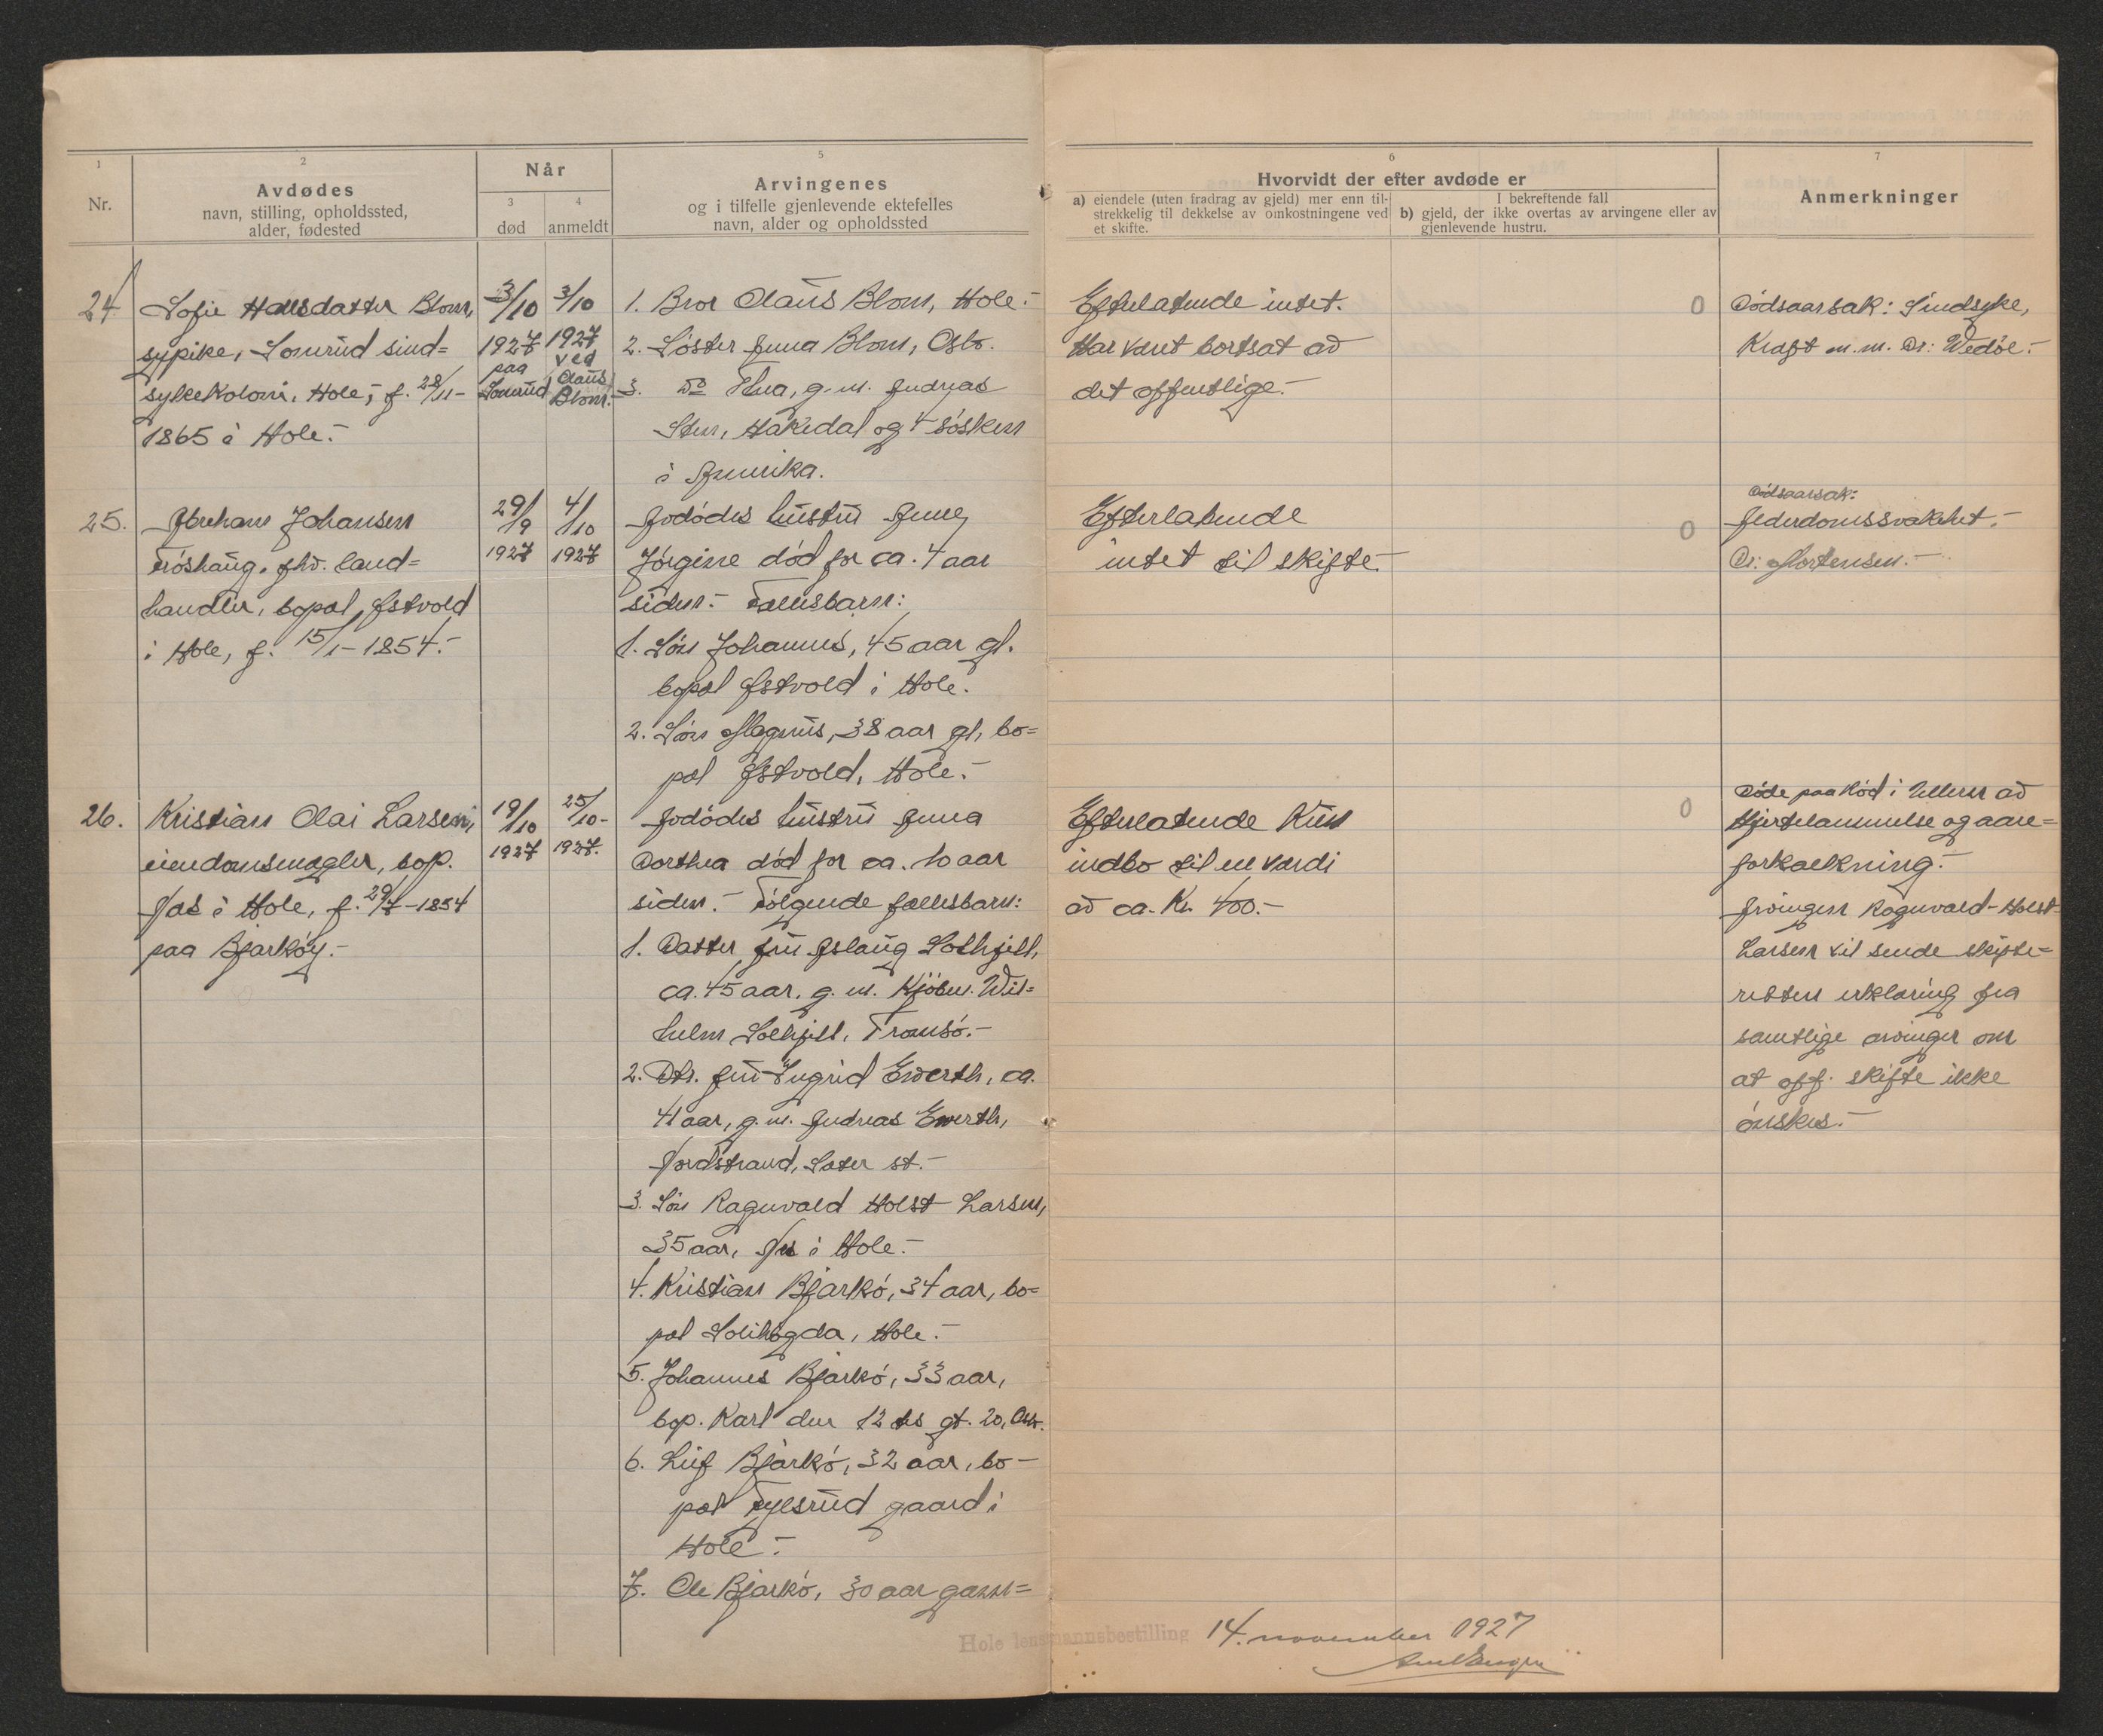 1
Nr.
2
Avdødes
navn, stilling, opholdssted,
alder, fødested
Når
3
død
4
anmeldt
5
Arvingenes
og i tilfelle gjenlevende ektefelles
navn, alder og opholdssted
6
Hvorvidt der efter avdøde er
a) eiendele (uten fradrag av gjeld) mer enn til-
strekkelig til dekkelse av omkostningene ved
et skifte.
I bekreftende fall
b) gjeld, der ikke overtas av arvingene eller av
gjenlevende hustru.
7
Anmerkninger
24
Sofie Hansdatter Blom,
sypike, Somrud sind=
sykekoloni, Hole, f. 28/11-
1865 i Hole.-
3/10
1927
paa
Somrud
3/10
1927
ved
Claus
Blom.
1. Bror Claus Blom, Hole.-
2. Søster Anna Blom, Oslo.
3. do Thea, g.m. Andreas
Sten, Hakedal og 4 søsken
i Amerika.
Efterlatende intet.
Har vært bortsat av
det offentlige.-
0
Dødsaarsak: Sindsyke,
Kræft m.m. Dr: Wedøe.-
25.
Abraham Johansen
Frøshaug, fhv. land=
handler, bopæl Østvold
i Hole, f. 15/1-1854.-
29/9
1927
4/10
1927
Avdødes hustru Anne
Jørgine død for ca. 4 aar
siden.- Fællesbarn:
1. Søn Johannes, 45 aar gl.
bopæl Østvold i Hole.-
2. Søn Magnus, 38 aar gl, bo=
pæl Østvold, Hole.-
Efterlatende
intet til skifte.-
0
Dødsaarsak:
Alderdomssvakhet.-
Dr: Mortensen.-
26.
Kristian Olai Larsen,
eiendomsmægler, bop.
Næs i Hole, f. 29/7-1854
paa Bjarkøy.-
19/10
1927
25/10-
1927.
Avdødes hustru Anna
Dorthea død for ca. 10 aar
siden.- Følgende fællesbarn:
1. Datter fru Aslaug Solhjell,
ca. 45 aar, g. m. Kjøbm. Wil=
helm Solhjell, Tromsø.-
2. Dtr. fru Ingrid Ewerth, ca.
41 aar, g.m. Andreas Ewerth,
Nordstrand, Sæter st.-
3. Søn Ragnvald Holst Larsen,
35 aar, Næs i Hole.-
4. Kristian Bjarkø, 34 aar, bo=
pæl Solihøgda, Hole.-
5. Johannes Bjarkø, 33 aar,
bop. Karl den 12tes gt. 20, Oslo.
6. Leif Bjarkø, 32 aar, bo-
pæl Fjelsrud gaard i
Hole.-
7. Ole Bjarkø, 30 aar
Efterlatende kun
indbo til en værdi
av ca. Kr. 400.-
0
Døde paa Rød i Ullern av
Hjertelammelse og aare=
forkalkning.-
Arvingen Ragnvald Holst-
Larsen vil sende skifte=
retten erklæring fra
samtlige arvinger om
at off. skifte ikke
ønskes.-
Hole lensmannsbestilling 14. november 1927